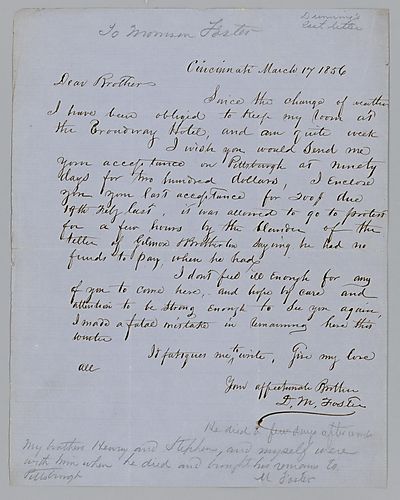 To Morrison Foster
Dunning's
last letter
Cincinnati March 17 1856
Dear Brother
Since the change of weather
I have been obliged to keep my room at
the Broadway Hotel, and am quite weak
I wish you would send me
your acceptance on Pittsburgh at ninety
days for two hundred dollars, I enclose
you your last acceptance for 200$ due
19th Feby last. it was allowed to go to protest
for a few hours by the blunder of the
teller of Gilmore & Brotherton saying he had no
funds to pay, when he had.
I dont feel ill enough for any
of you to come here, and hope by care and
attention to be strong enough to see you again,
I made a fatal mistake in remaining here this
winter
It fatigues me to write, Give my love
all
Your affectionate Brother
D. M. Foster
He died a few days afterwards
My brothers Henry and Stephen, and myself were
with him when he died and brought his remains to
Pittsburgh
M Foster